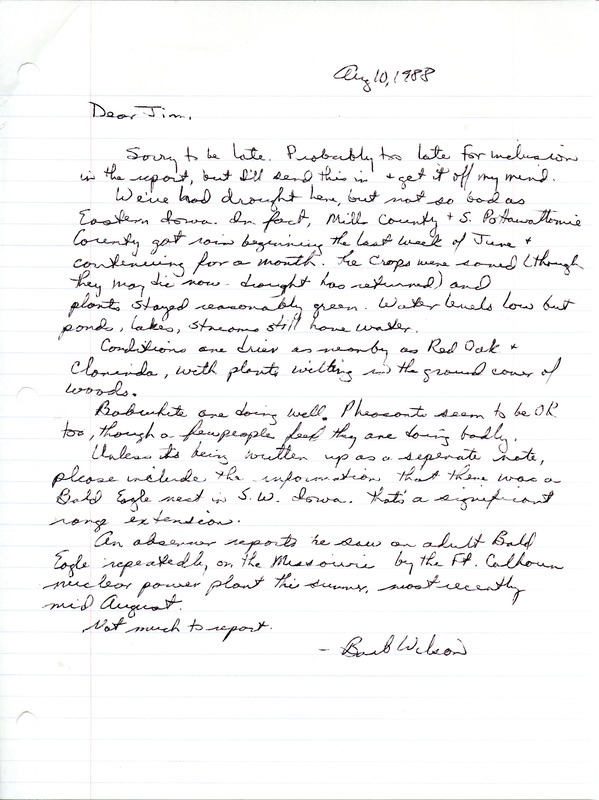 Aug 10, 1988
Dear Jim,
Sorry to be late. Probably too late for inclusion
in the report, but I'll send this in + get it off my mind.
We've had drought here, but not so bad as
Eastern Iowa. In fact, Mills County + S. Pottawattomie
County got rain beginning the last week of June +
continuing for a month. The crops were saved (though
they may die now - drought has returned) and
plants stayed reasonably green. Water levels low but
ponds, lakes, streams still have water.
Conditions are drier as nearby as Red Oak +
Clarinda, with plants wilting in the ground cover of
woods.
Bobwhite are doing well. Pheasants seem to be OK
too, though a few people feel they are doing badly.
Unless its being written up as a seperate note,
please include the information that there was a
Bald Eagle nest in S.W. Iowa. That's a significant
range extension.
An observer reports he saw an adult Bald
Eagle repeatedly, on the Missouri by the Ft. Calhoun
nuclear power plant this summer, most recently
mid August.
Not much to report.
- Barb Wilson